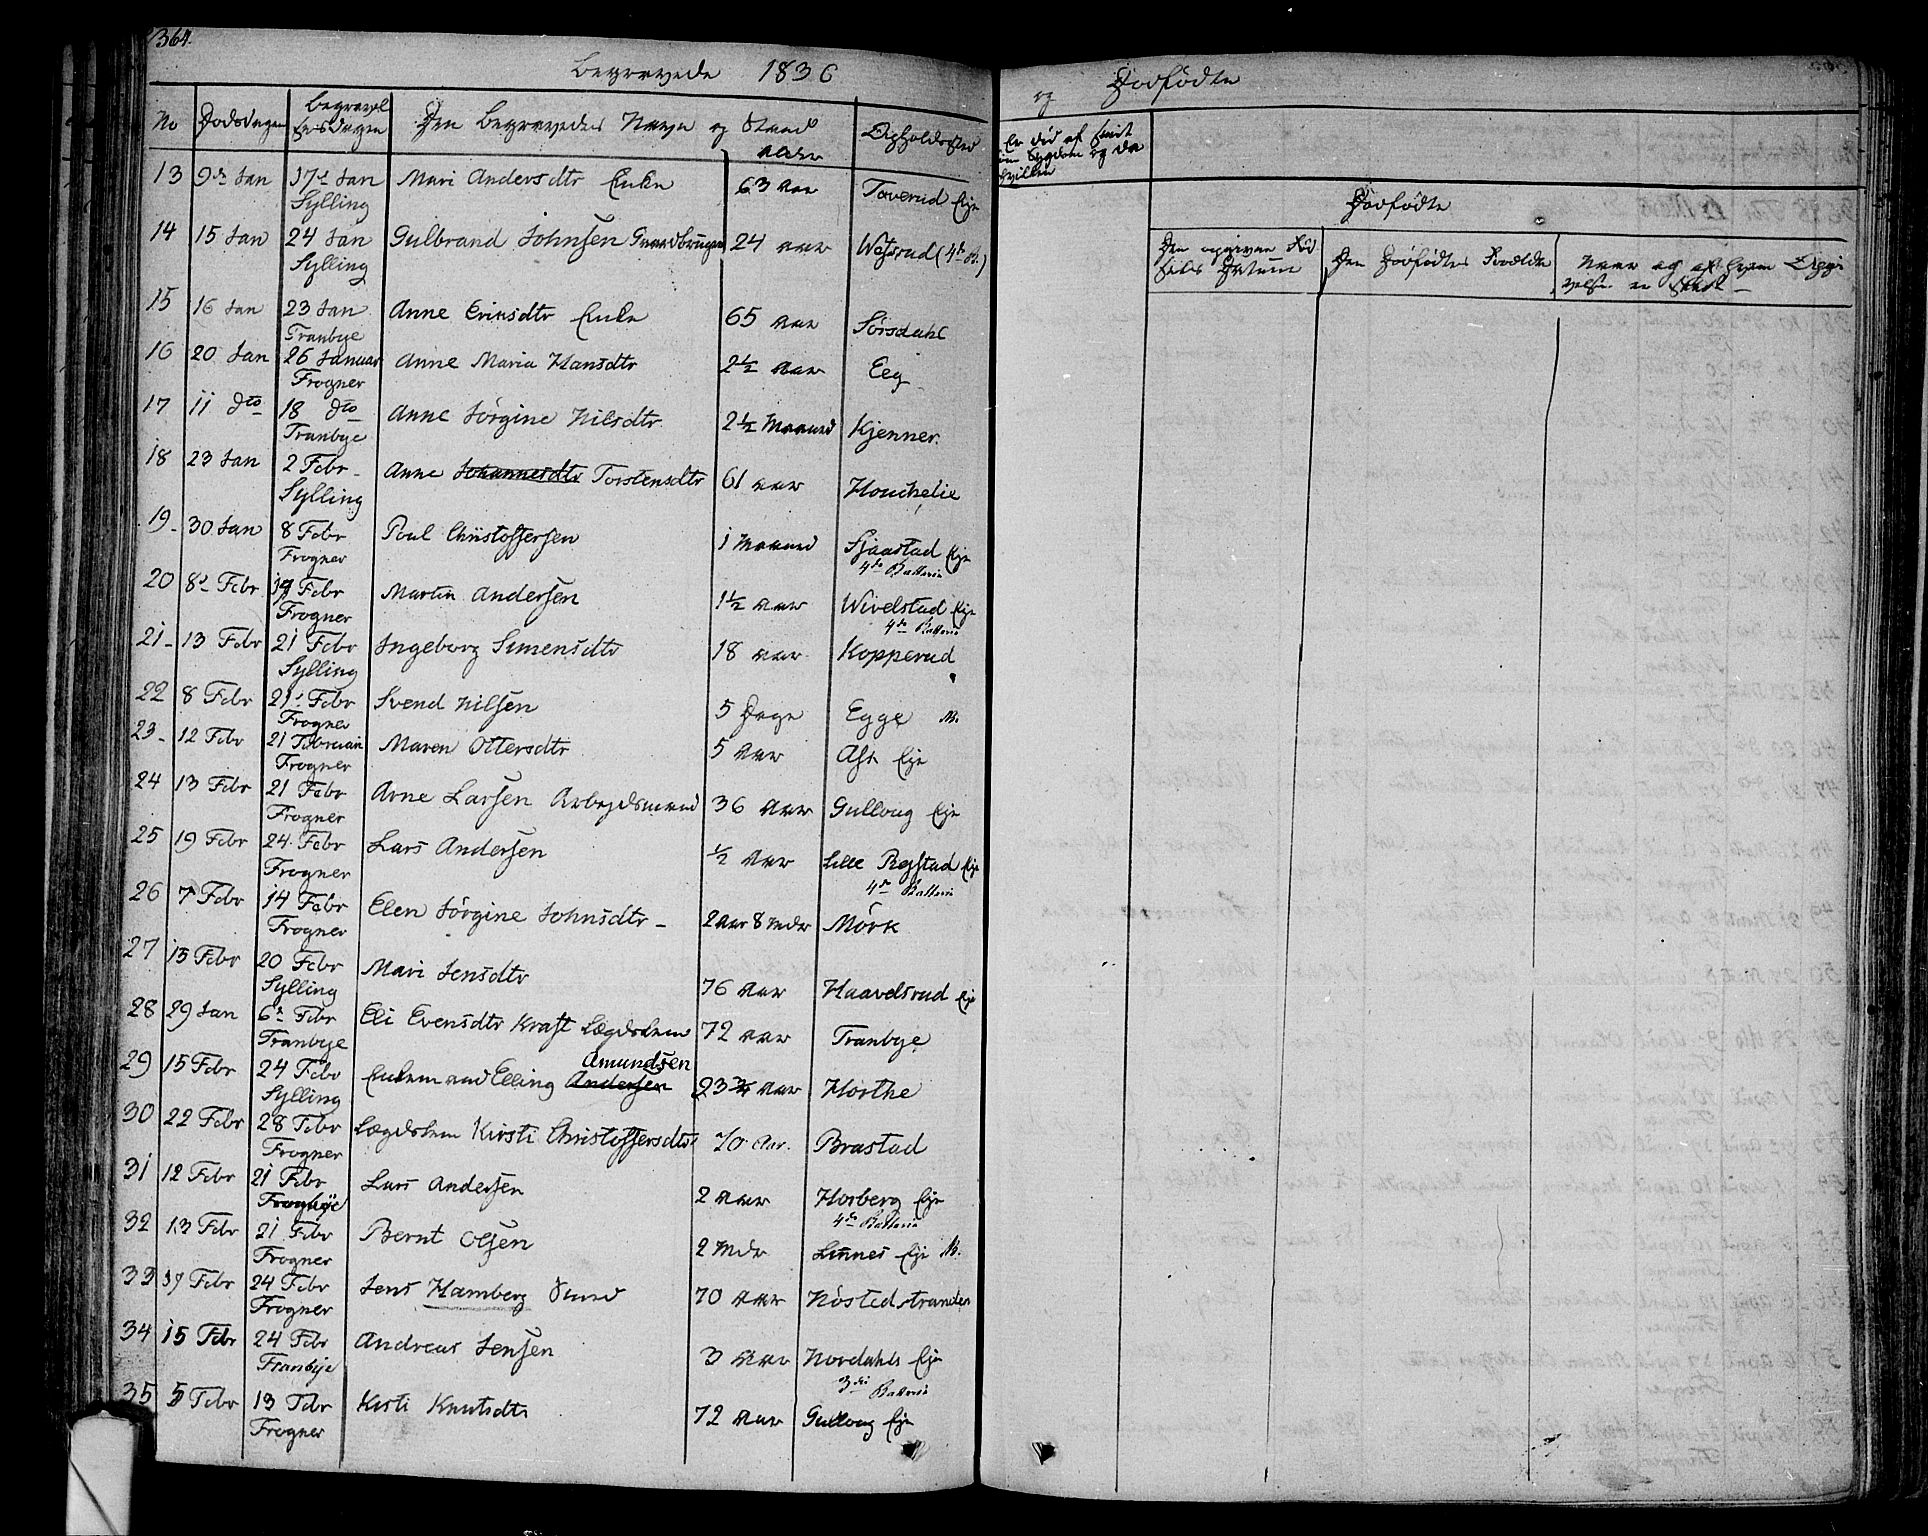 364.
Begravede 1836
No Dødsdagen Begravelsesdagen Den Begravedes Navn og Stand Alder Opholdssted
13 9de Jan 17d Jan Mari Andersdtr Enke 63 Aar Toverud Eje
Sylling
14 15 Jan 24 Jan Gulbrand Johnsen Gaardbruger 24 aar Wejsrud (4de B.)
Sylling
15 16 Jan 23 Jan Anne Erinsdtr Enke 65 aar Sørsdahl
Tranbye
16 20 Jan 26 Januar Anne Maria Hansdtr 2½ aar Eeg
Frogner
17 11 dto 18 dto Anne Jørgine Nilsdtr 2½ Maaned Kjenner
Tranbye
18 23 Jan 2 Febr Anne Johannesdtr Torstensdtr 61 aar Houchelie
Sylling
19 30 Jan 8 Febr Poul Christoffersen 1 Maaned Sjaastad Eje
Frogner 4de Batteri
20 8d Febr 19 Febr Martin Andersen 1½ aar Wivelstad Eje
Frogner 4de Batteri
21 13 Febr 21 Febr Ingeborg Simensdtr 18 aar Kopperud
Sylling
22 8 Febr 21d Febr Svend Nilsen 5 Dage Egge
Frogner
23 12 Febr 21 Februar Maren Ottersdtr 5 Aar Ask Eje
Frogner
24 13 Febr 21 Febr Arne Larsen Arbejdsmand 36 aar Gulloug Eje
Frogner
25 19 Febr 24 Febr Lars Andersen ½ Aar Lille Regstad Eje
Frogner 4de Batteri
26 7 Febr 14 Febr Elen Jørgine Johnsdtr 2 aar 8 Mdr Mörk
Frogner
27 13 Febr 20 Febr Mari Jensdtr 76 aar Haavelsrud Eje
Sylling
28 29 Jan 6te Febr Eli Evensdtr Kraft Lægdslem 72 aar Tranbye
Tranbye
Amundsen
29 15 Febr 24 Febr Enkemand Elling Andersen 23¾ aar Horthe
Sylling
30 22 Febr 28 Febr Lægdslem Kirsti Christoffersdtr 70 Aar. Brastad
Frogner
31 12 Febr 21 Febr Lars Andersen 2 aar Horberg Eje
Tranbye 4de Batteri
32 13 Febr 21 Febr Bernt Olsen 2 Mdr Linnes Eje
Frogner
33 17 Febr 24 Febr Jens Hamberg 70 aar Nöstedstranden
Frogner
34 15 Febr 24 Febr Andreas Jensen 3 Aar Nordahls Eje
Tranbye 3die Batteri
35 5 Febr 13 Febr Kisti Knutsdtr 72 aar Gulloug Eje
Frogner
og Dødfødte
Er død af
Sygdom og da
hvilken
Dødfødte
Den opgivne Fødsels Datum Den Dødfødtes Forældre Naar og af hvem Opgivelse er skeet